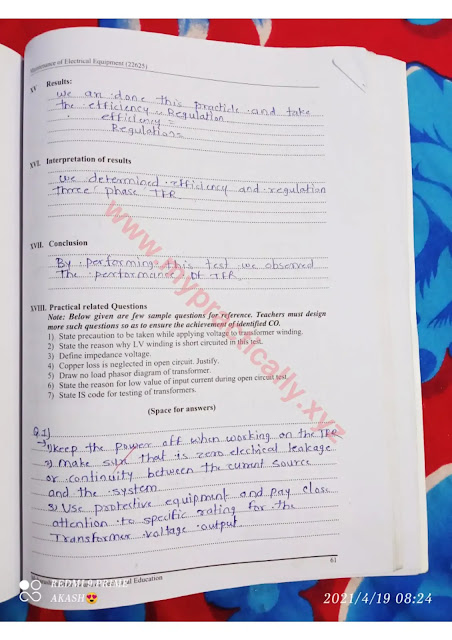 Maintenance of Electrical Equipment (22625)
XV Results:
We an done this practicle and take
the efficiency & Regulation
efficiency =
Regulation =
XVI. Interpretation of results
We determined efficiency and regulation
three phase TFR.
XVII. Conclusion
By performing this test we observed
The performance Of TFR.
XVIII. Practical related Questions
Note: Below given are few sample questions for reference. Teachers must design
more such questions so as to ensure the achievement of identified CO.
1) State precaution to be taken while applying voltage to transformer winding.
2) State the reason why LV winding is short circuited in this test.
3) Define impedance voltage.
4) Copper loss is neglected in open circuit. Justify.
5) Draw no load phasor diagram of transformer.
6) State the reason for low value of input current during open circuit test.
7) State IS code for testing of transformers.
(Space for answers)
Q.1)
→ 1) Keep the power off when working on the TFR
2) Make that is zero electrical leakage
or continuity between the current source
and the system
3) Use protective equipment and pay close
attention to specific rating for the
Transformer voltage output
61
Education
REDMI 9 PRIME
AKASH😍
2021/4/19 08:24
www.mypractically.xyz